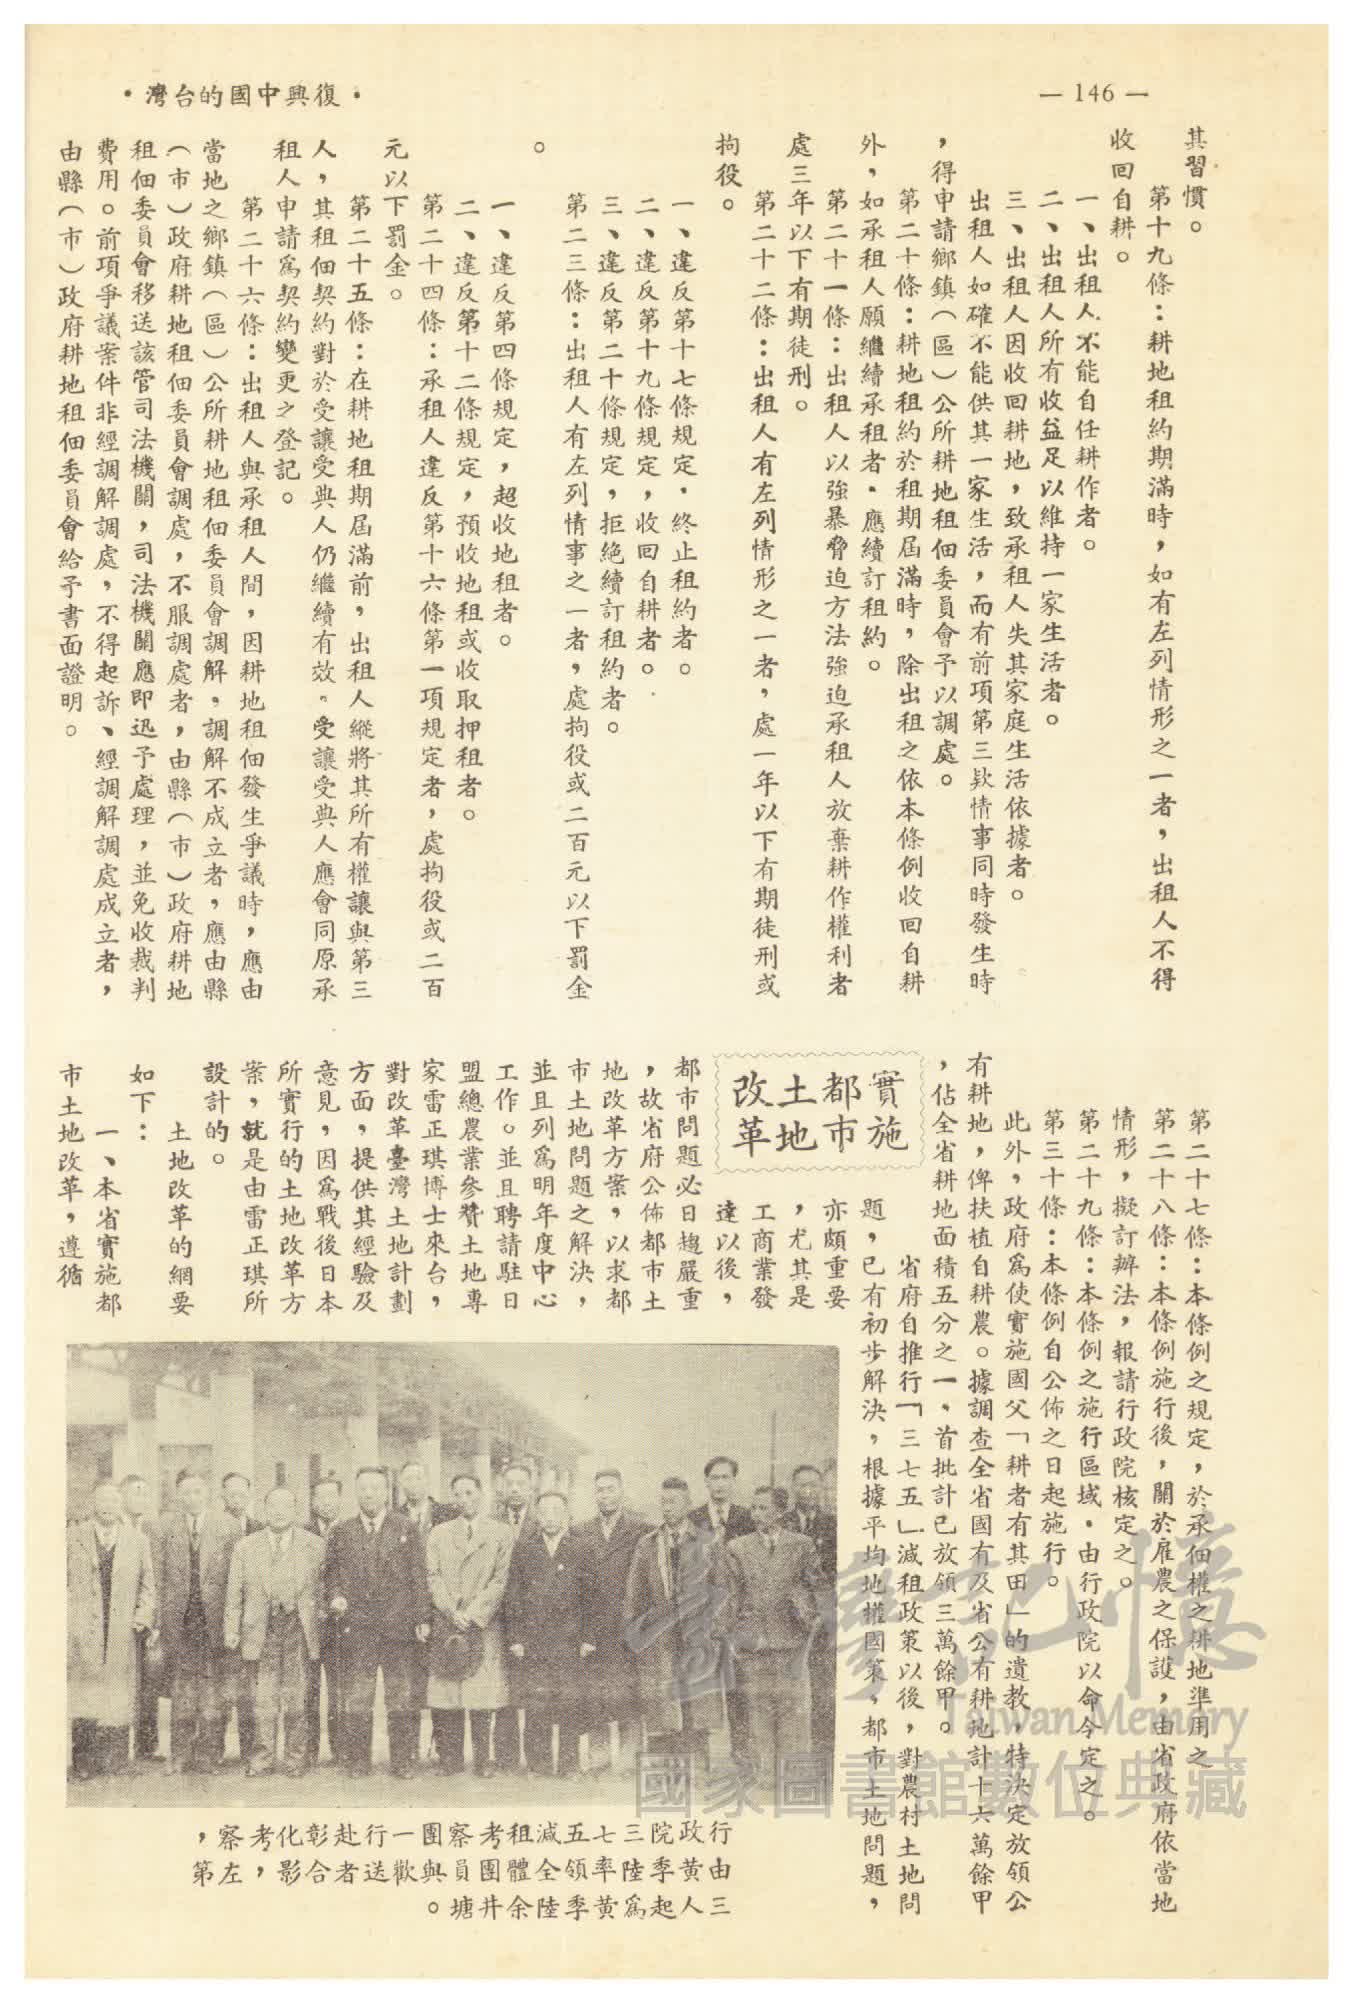 — 146 —
・復興中國的台灣・
其習慣。
第十九條：耕地租約期滿時，如有左列情形之一者，出租人不得
收回自耕。
一、出租人不能自任耕作者。
二、出租人所有收益足以維持一家生活者。
三、出租人因收回耕地，致承租人失其家庭生活依據者。
出租人如確不能供其一家生活，而有前項第三款情事同時發生時
，得申請鄉鎮（區）公所耕地租佃委員會予以調處。
第二十條：耕地租約於租期屆滿時，除出租之依本條例收回自耕
外，如承租人願繼續承租者・應續訂租約。
第二十一條：出租人以強暴脅迫方法強迫承租人放棄耕作權利者
處三年以下有期徒刑。
第二十二條：出租人有左列情形之一者，處一年以下有期徒刑或
拘役。
一、違反第十七條規定・終止租約者。
二、違反第十九條規定，收回自耕者。
三、違反第二十條規定，拒絕續訂租約者。
第二三條：出租人有左列情事之一者，處拘役或二百元以下罰金
。
一、違反第四條規定，超收地租者。
二、違反第十二條規定，預收地租或收取押租者。
第二十四條：承租人違反第十六條第一項規定者，處拘役或二百
元以下罰金。
第二十五條：在耕地租期屆滿前，出租人縱將其所有權讓與第三
人，其租佃契約對於受讓受典人仍繼續有效。受讓受典人應會同原承
租人申請爲契約變更之登記。
第二十六條：出租人與承租人間，因耕地租佃發生爭議時，應由
當地之鄉鎮（區）公所耕地租佃委員會調解，調解不成立者，應由縣
（市）政府耕地租佃委員會調處，不服調處者，由縣（市）政府耕地
租佃委員會移送該管司法機關，司法機關應即迅予處理，並免收裁判
費用。前項爭議案件非經調解調處，不得起訴、經調解調處成立者，
由縣（市）政府耕地租佃委員會給予書面證明。
第二十七條：本條例之規定，於承佃權之耕地準用之
第二十八條：本條例施行後，關於雇農之保護，由省政府依當地
情形，擬訂辦法，報請行政院核定之。
第二十九條：本條例之施行區域・由行政院以命令定之。
第三十條：本條例自公佈之日起施行。
此外，政府爲使實施國父「耕者有其田」的遺教，特決定放領公
有耕地，俾扶植自耕農。據調查全省國有及省公有耕地計十六萬餘甲
，佔全省耕地面積五分之一，首批計已放領三萬餘甲。
實施
都市
土地
改革
省府自推行「三七五」減租政策以後，對農村土地問
題，已有初步解決，根據平均地權國策，都市土地問題，
亦頗重要
，尤其是
工商業發
達以後，
都市問題必日趨嚴重
，故省府公佈都市土
地改革方案，以求都
市土地問題之解決，
並且列爲明年度中心
工作。並且聘請駐日
盟總農業參贊土地專
家雷正琪博士來台，
對改革臺灣土地計劃
方面，提供其經驗及
意見，因爲戰後日本
所實行的土地改革方
案，就是由雷正琪所
設計的。
土地改革的綱要
如下：
一、本省實施都
市土地改革，遵循
行政院三七五減租考察團一行赴彰化考察，
由黃季陸率領全體團員與歡送者合影，左第
三人起爲黃季陸余井塘。
臺灣記憶
Taiwan Memory
國家圖書館數位典藏